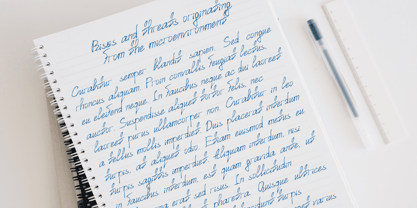 Poises and threats originating
from the microenvironment
Curabitur semper blandit sapien. Sed congue
rhoncus aliquam. Proin convallis feugiat lectus,
eu eleifend neque. In faucibus neque ac dui laoreet
auctor. Suspendisse aliquet tortor felis, nec
laoreet purus ullamcorper non. Curabitur in leo
a tellus mollis imperdiet. Duis placerat interdum
turpis, at aliquet odio. Etiam euismod metus eu
turpis sagittis imperdiet. Aliquam interdum, nisi
in faucibus interdum, est quam gravida ante, ut
erat sed risus. In sollicitudin
pharetra. Quisque ultrices
interdum
varius